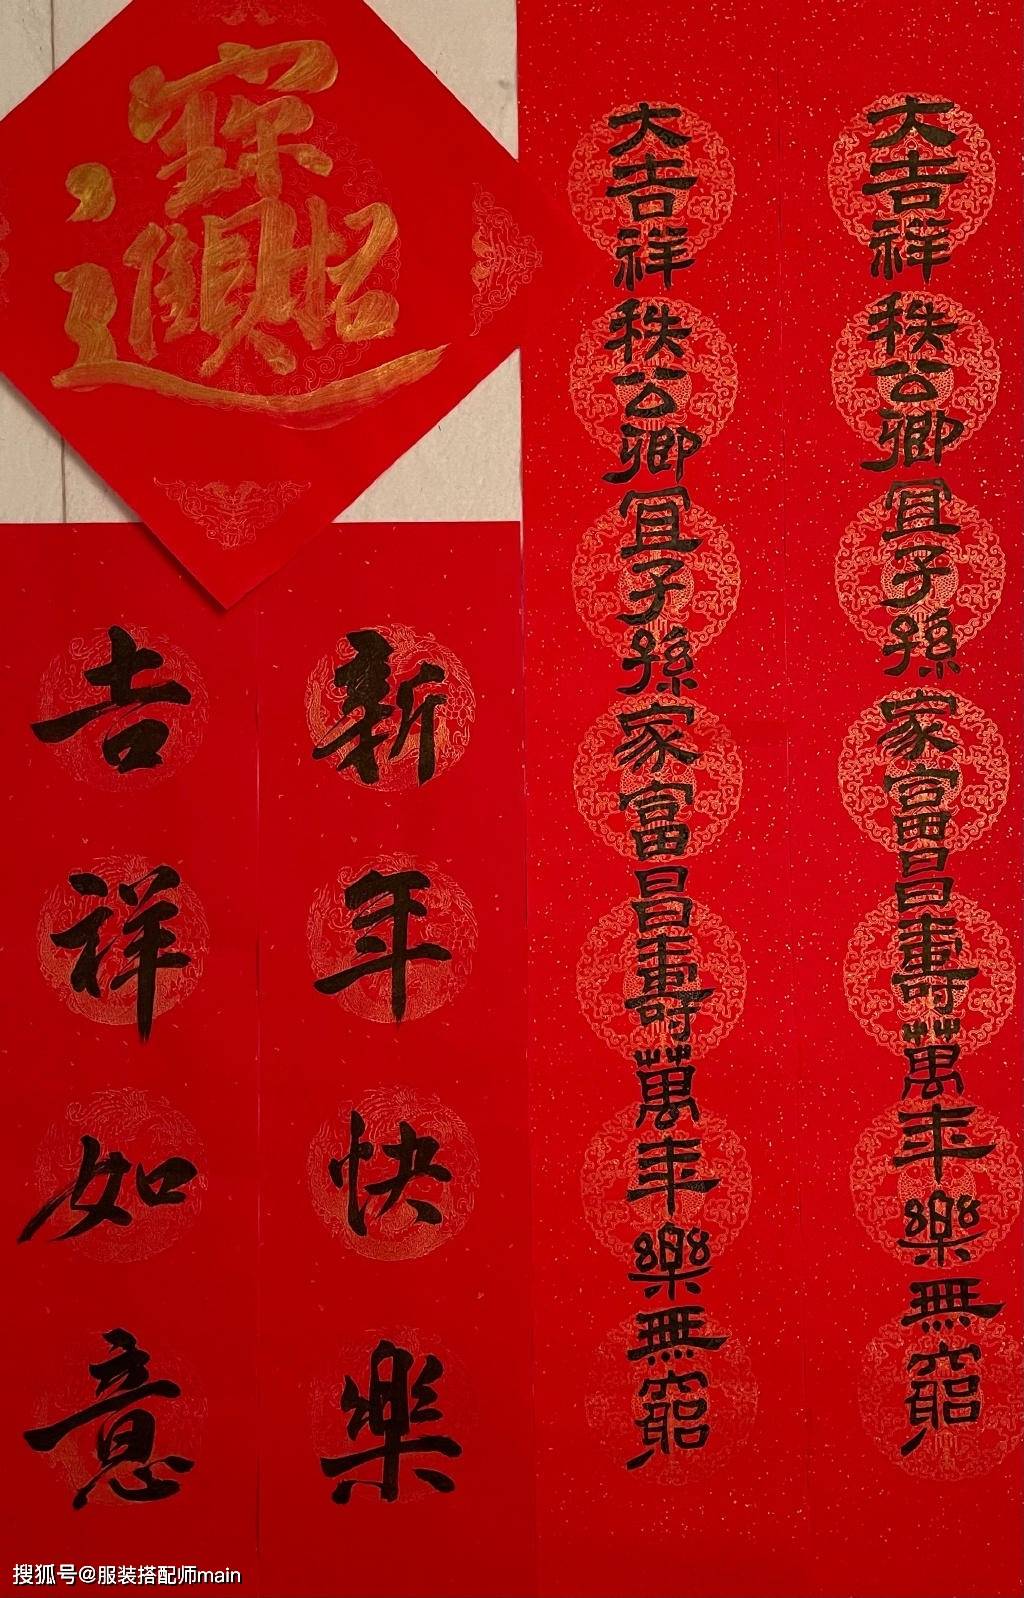 招財進寶
大吉祥秩公卿宜子孫家富昌壽萬年樂無窮
大吉祥秩公卿宜子孫家富昌壽萬年樂無窮
新年快樂
吉祥如意
搜狐号@服装搭配师main